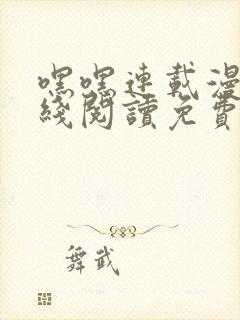 嘿嘿連載漫
綫閱讀免費
舞武